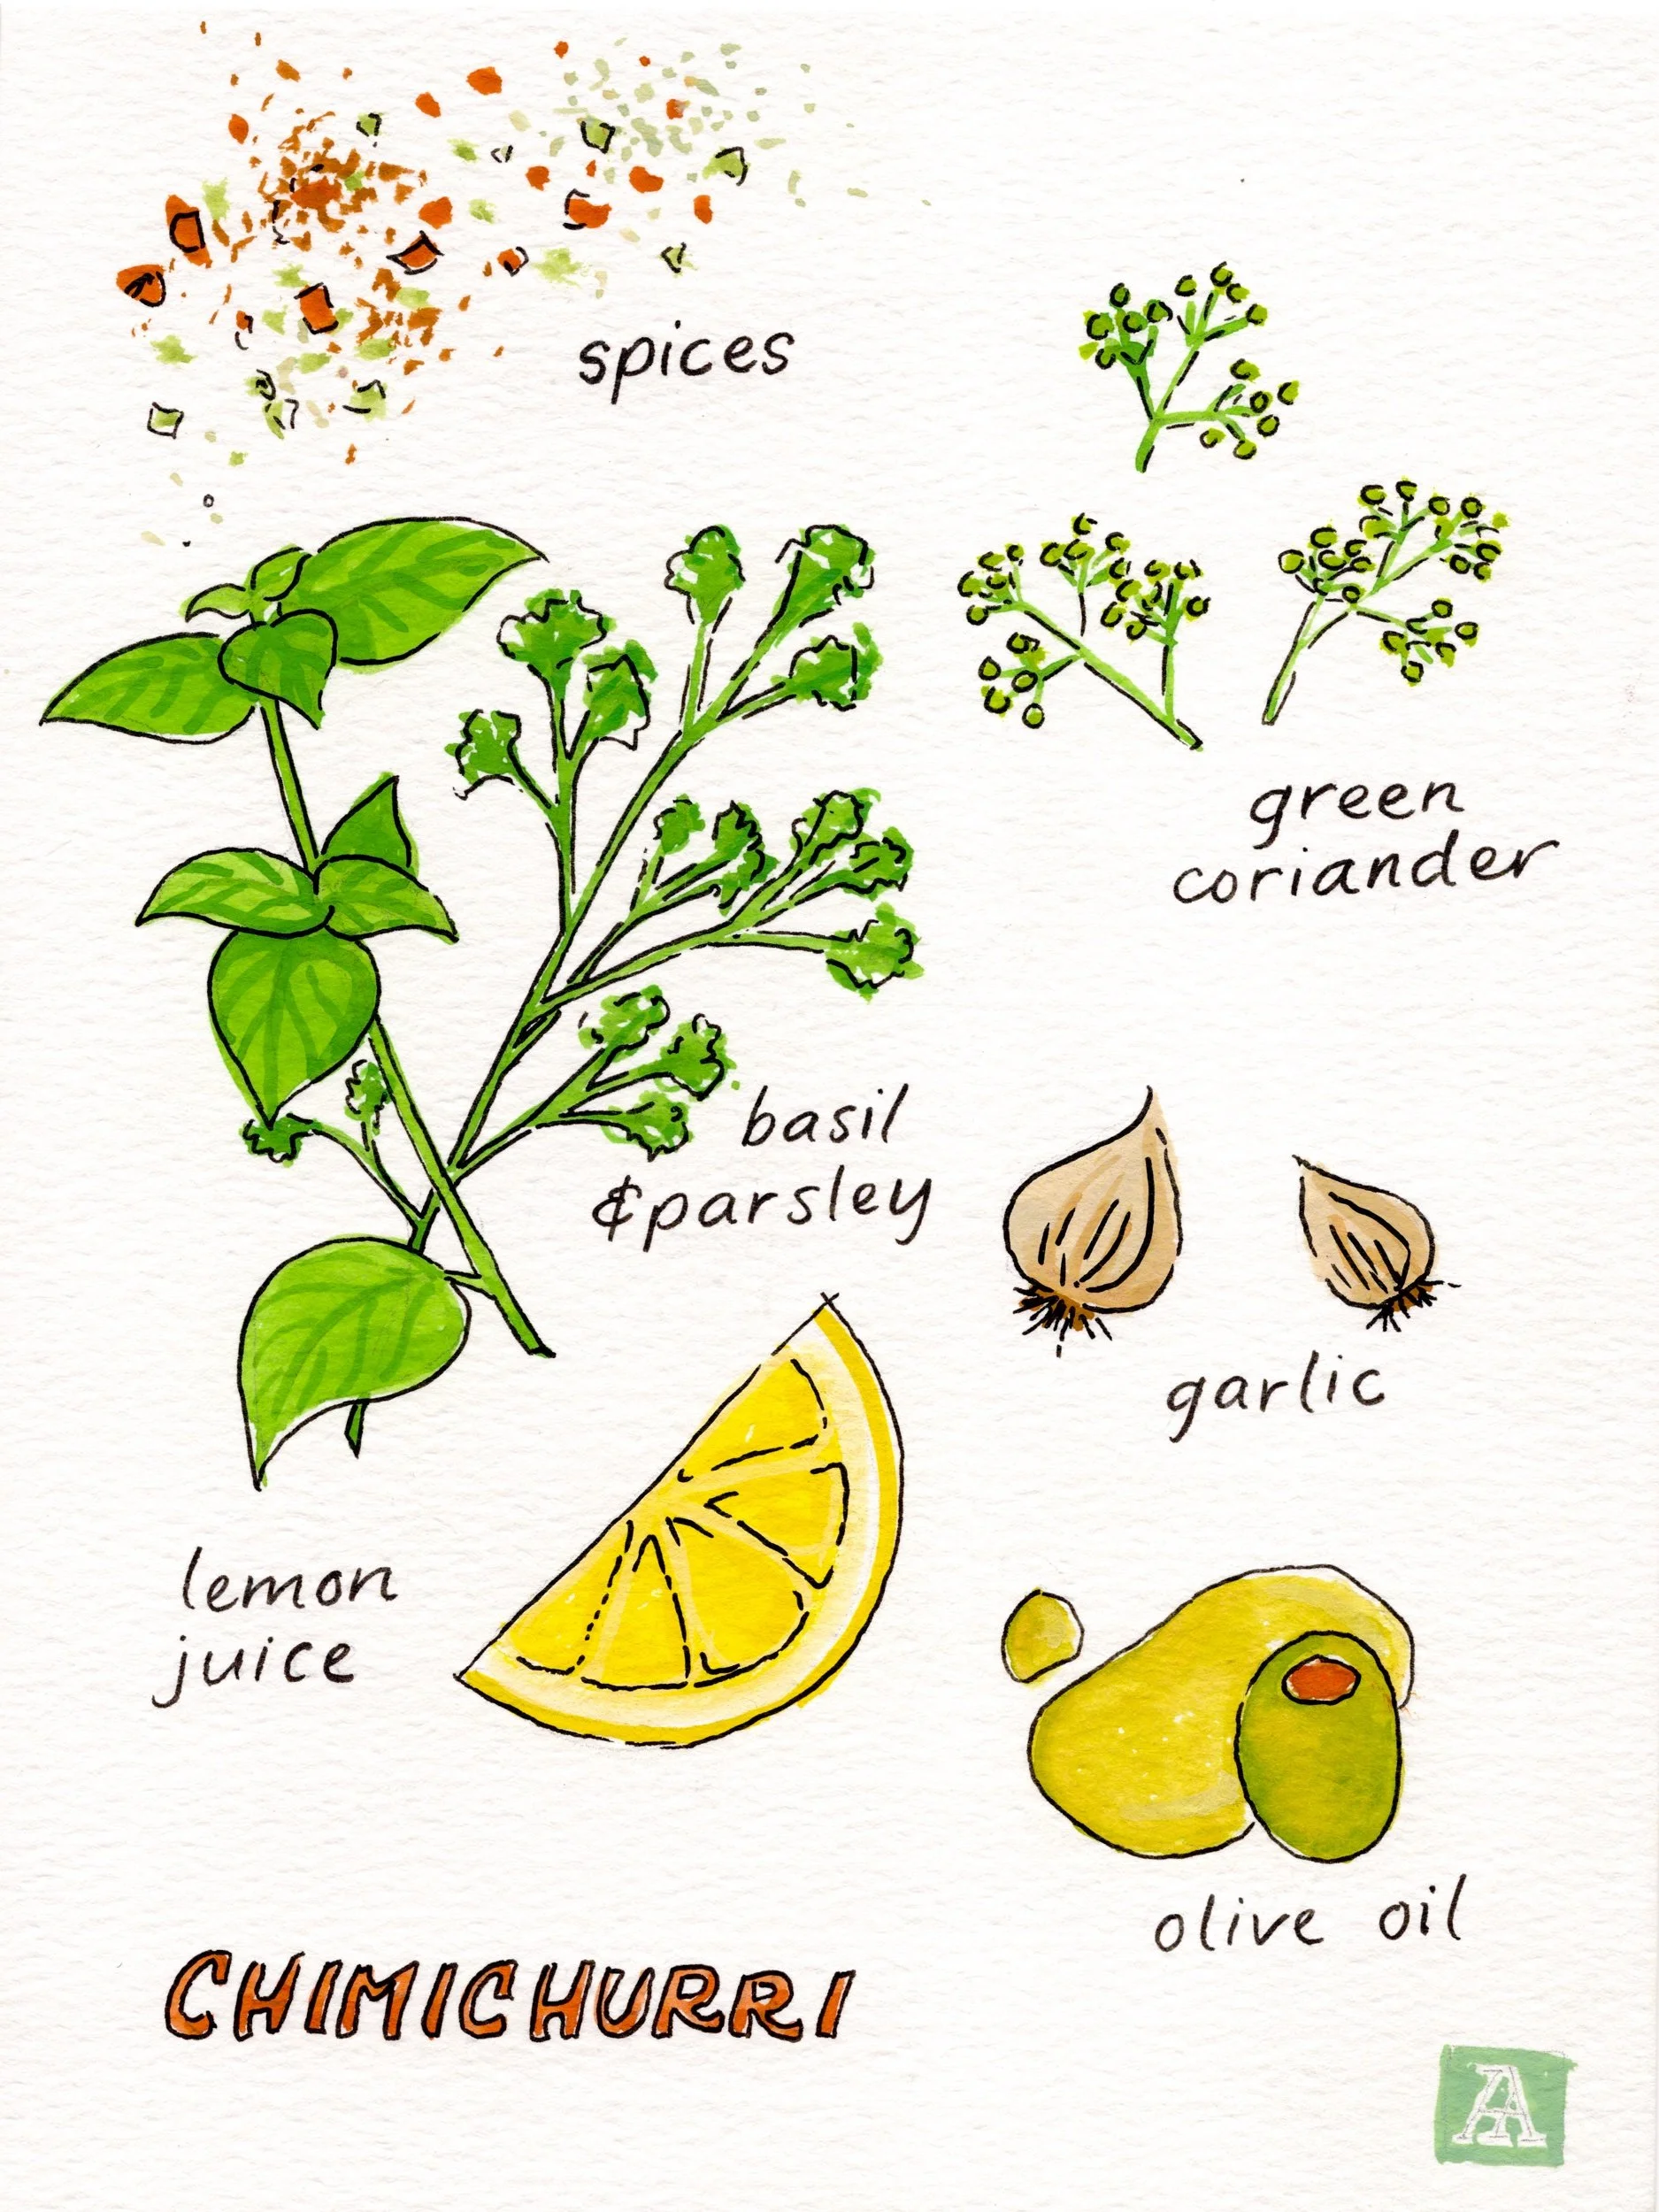 spices
green
coriander
basil
& parsley
garlic
lemon
juice
olive oil
CHIMICHURRI
A